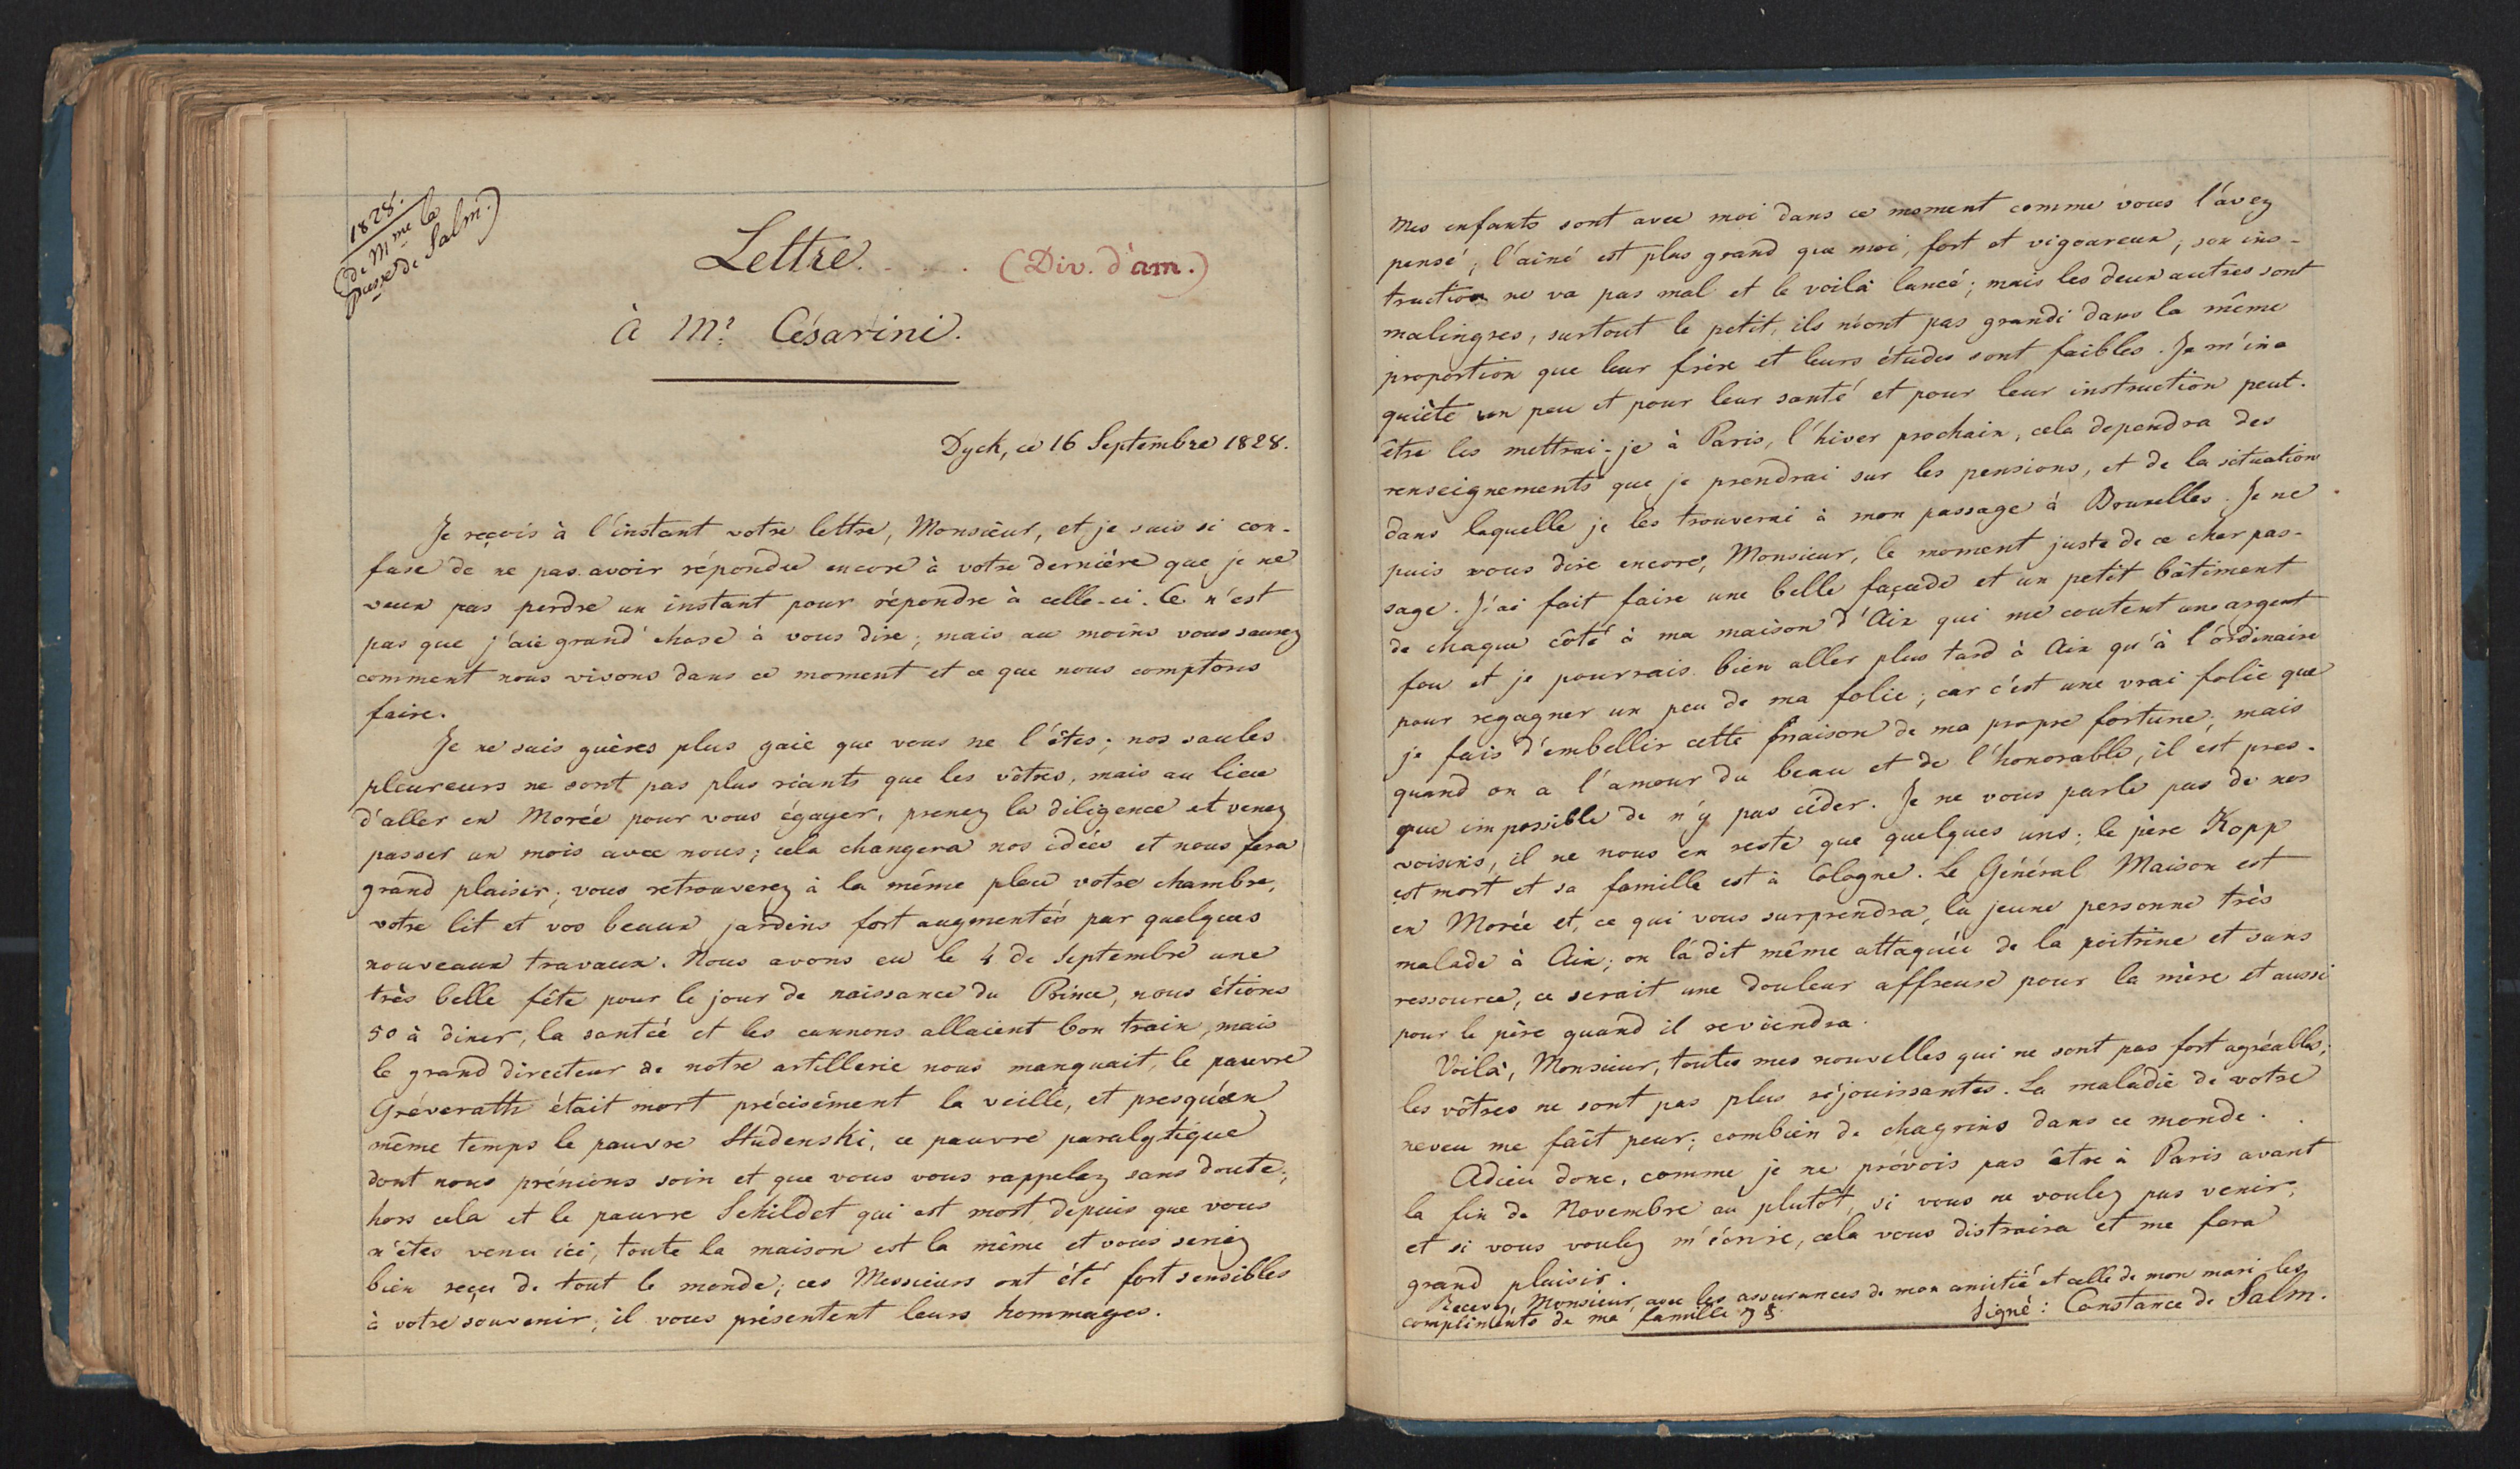 1828.
(de Mme la
Psse de Salm.)
Lettre. . . . (Div. d'am.)
à Mr. Césarini.
Dyck, ce 16 Septembre 1828.
Je reçois à l'instant votre lettre, Monsieur, et je suis si con-
fuse de ne pas avoir répondu encore à votre dernière que je ne
veux pas perdre un instant pour répondre à celle-ci. Ce n'est
pas que j'aie grand'chose à vous dire; mais au moins vous saurez
comment nous vivons dans ce moment et ce que nous comptons
faire.
Je ne suis guères plus gaie que vous ne l'êtes; nos saules
pleureurs ne sont pas plus riants que les vôtres, mais au lieu
d'aller en Morée pour vous égayer, prenez la diligence et venez
passer un mois avec nous; cela changera nos idées et nous fera
grand plaisir; vous retrouverez à la même place votre chambre,
votre lit et vos beaux jardins fort augmentés par quelques
nouveaux travaux. Nous avons eu le 4 de Septembre une
très belle fête pour le jour de naissance du Prince, nous étions
50 à diner, la santée et les cannons allaient bon train, mais
le grand directeur de notre artillerie nous manquait, le pauvre
Gréverath était mort précisément la veille, et presqu'en
même temps le pauvre Studenski, ce pauvre paralytique
dont nous prenions soin et que vous vous rappelez sans doute;
hors cela et le pauvre Schildet qui est mort depuis que vous
n'êtes venu ici, toute la maison est la même et vous seriez
bien reçu de tout le monde; ces Messieurs ont été fort sensibles
à votre souvenir; il vous présentent leurs hommages.
Mes enfants sont avec moi dans ce moment comme vous l'avez
pensé; l'ainé est plus grand que moi, fort et vigoureux; son ins-
truction ne va pas mal et le voilà lancé; mais les deux autres sont
malingres, surtout le petit, ils n'ont pas grandi dans la même
proportion que leur frère et leurs études sont faibles. Je m'in-
quiète un peu et pour leur santé et pour leur instruction peut-
être les mettrai-je à Paris, l'hiver prochain, cela dependra des
renseignements que je prendrai sur les pensions, et de la situation
dans laquelle je les trouverai à mon passage à Bruxelles. Je ne
puis vous dire encore, Monsieur, le moment juste de ce cher pas-
sage. J'ai fait faire une belle façade et un petit bâtiment
de chaque côté à ma maison d'Aix qui me coutent un argent
fou et je pourrais bien aller plus tard à Aix qu'à l'ordinaire
pour regagner un peu de ma folie; car c'est une vrai folie que
je fais d'embellir cette maison de ma propre fortune; mais
quand on a l'amour du beau et de l'honorable, il est pres-
que impossible de n'y pas céder. Je ne vous parle pas de nos
voisins, il ne nous en reste que quelques uns; le père Kopp
est mort et sa famille est à Cologne. Le Général Maison est
en Morée et, ce qui vous surprendra, la jeune personne très
malade à Aix; on la dit même attaquée de la poitrine et sans
ressource, ce serait une douleur affreuse pour la mère et aussi
pour le père quand il reviendra.
Voilà, Monsieur, toutes mes nouvelles qui ne sont pas fort agréables;
les vôtres ne sont pas plus réjouissantes. La maladie de votre
neveu me fait peur; combien de chagrins dans ce monde.
Adieu donc, comme je ne prévois pas être à Paris avant
la fin de Novembre au plutôt, si vous ne voulez pas venir,
et si vous voulez m'écrire, cela vous distraira et me fera
grand plaisir.
Recevez, Monsieur, avec les assurances de mon amitié et celle de mon mari les
compliments de ma famille
Signé: Constance de Salm.